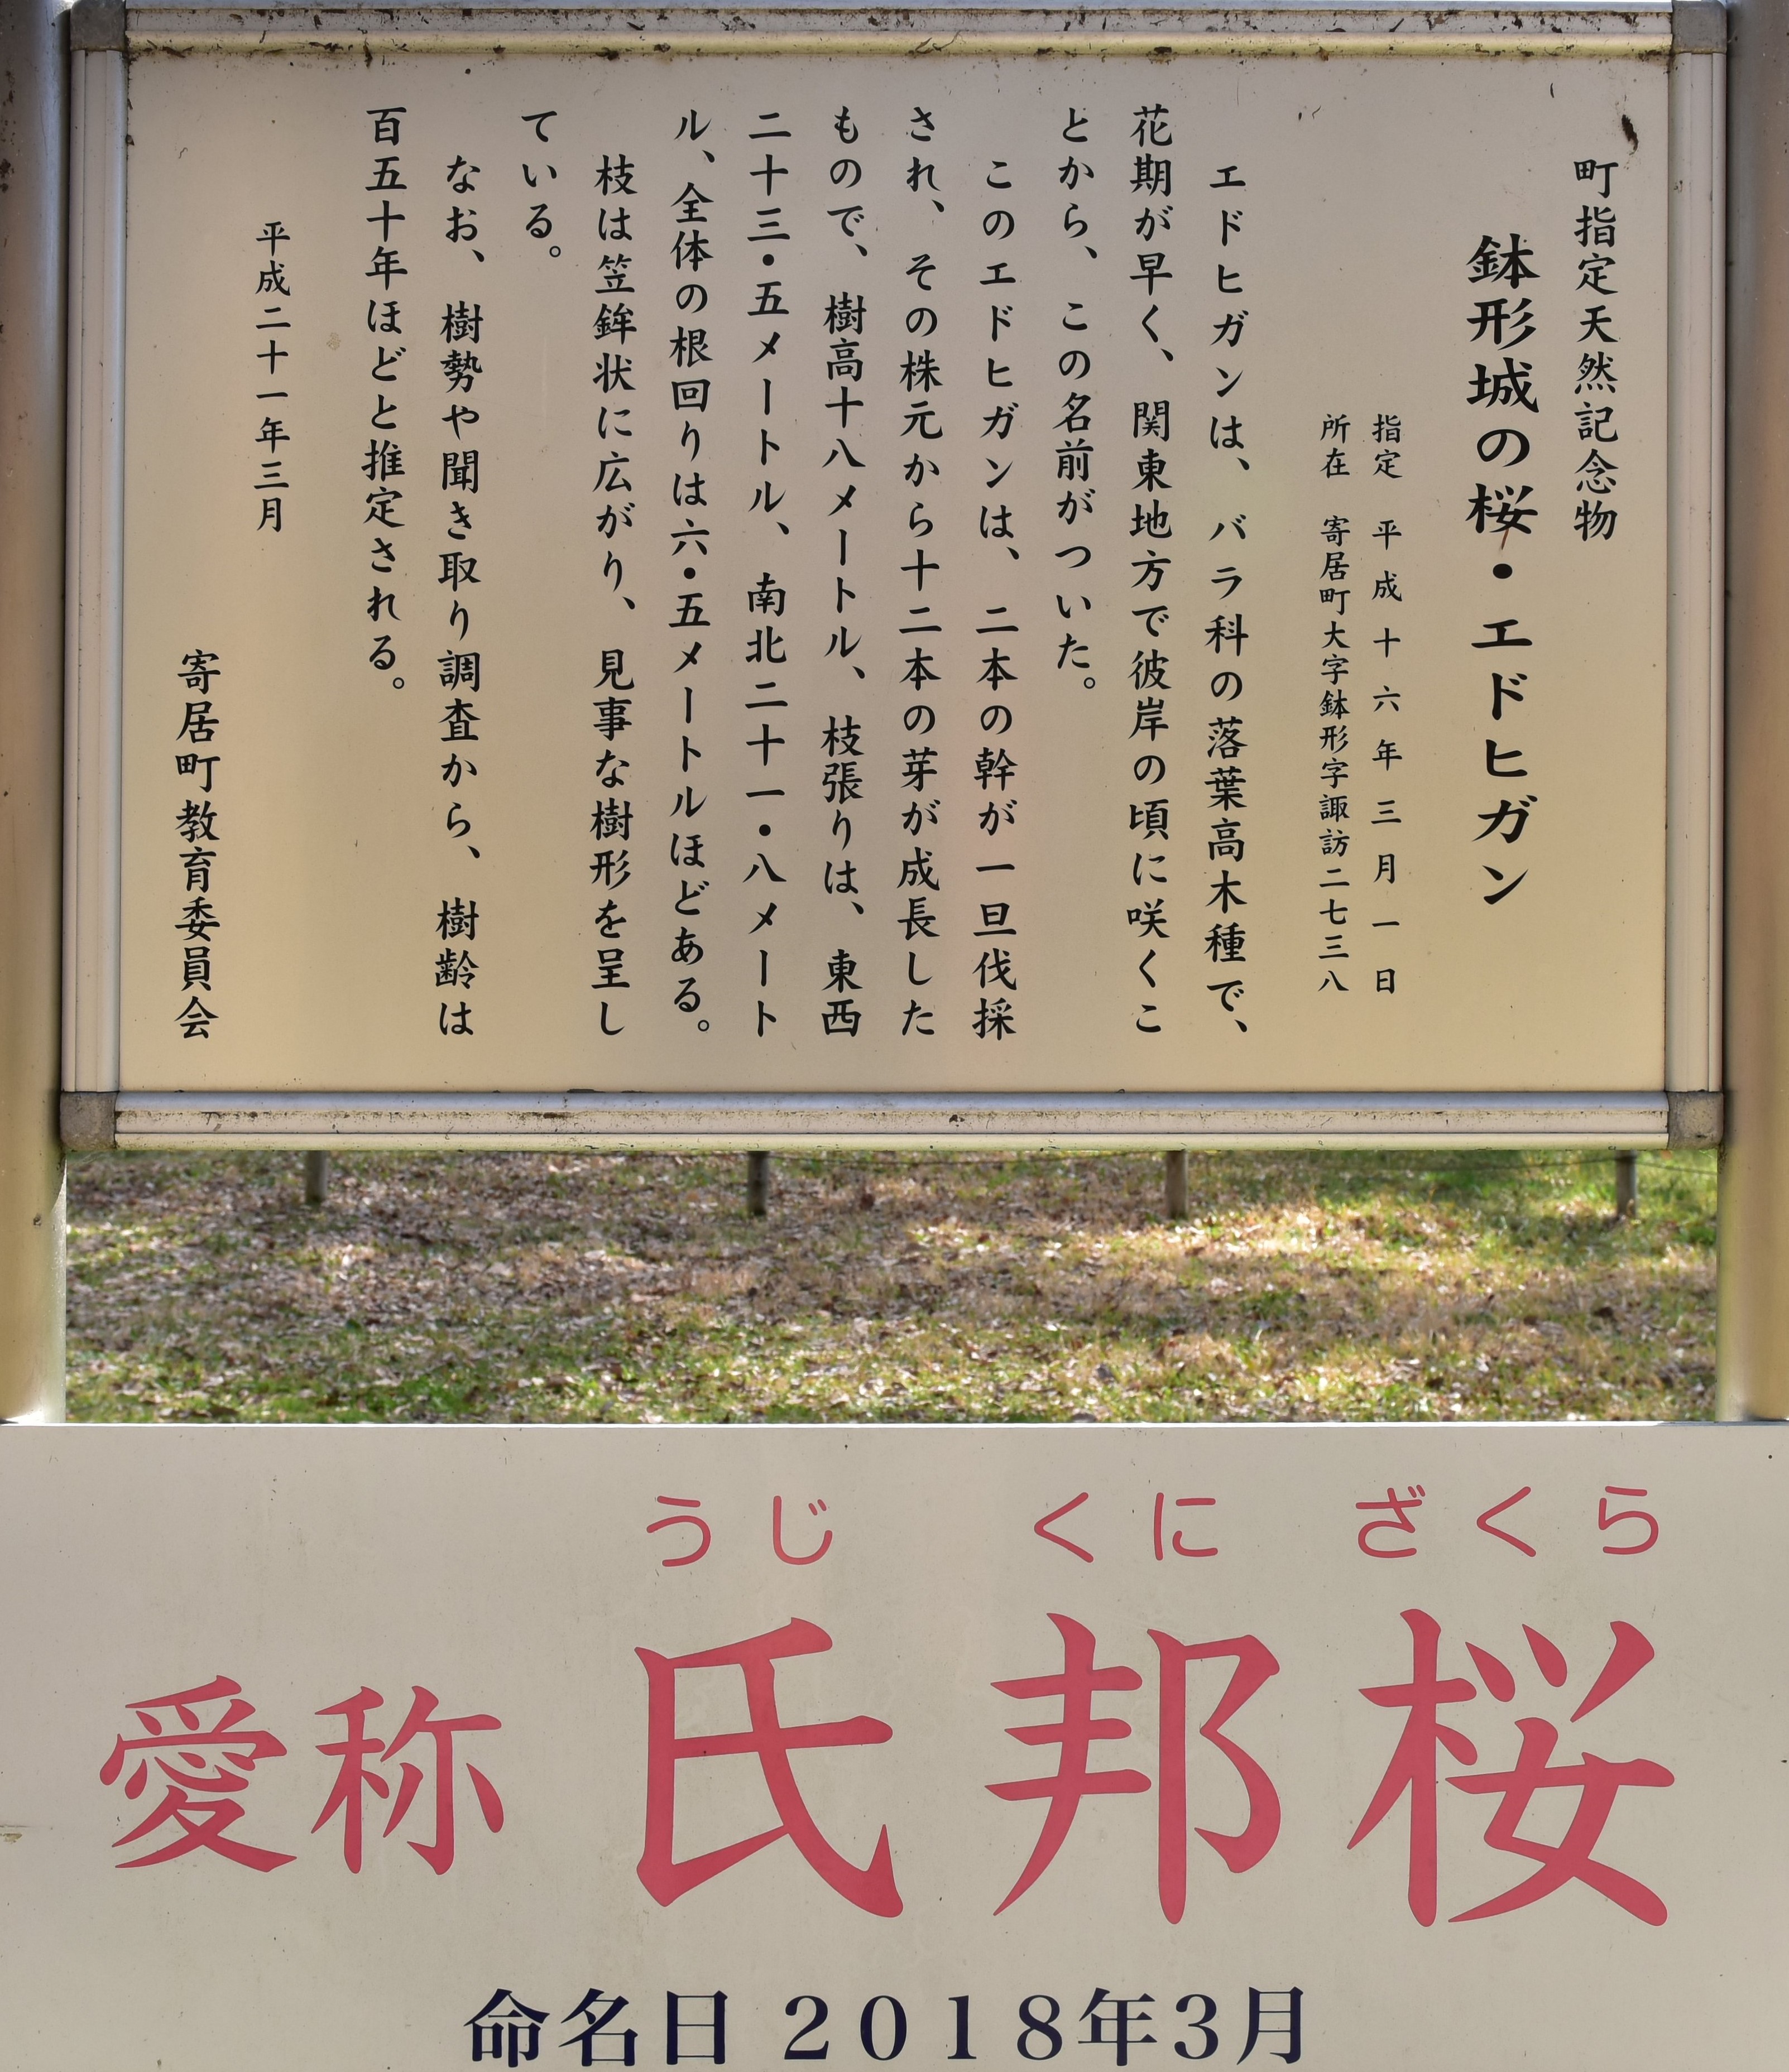 町指定天然記念物
鉢形城の桜・エドヒガン
指定　平成十六年三月一日
所在　寄居町大字鉢形字諏訪二七三八
エドヒガンは、バラ科の落葉高木種で、
花期が早く、関東地方で彼岸の頃に咲くこ
とから、この名前がついた。
このエドヒガンは、二本の幹が一旦伐採
され、その株元から十二本の芽が成長した
もので、樹高十八メートル、枝張りは、東西
二十三・五メートル、南北二十一・八メート
ル、全体の根回りは六・五メートルほどある。
枝は笠鉾状に広がり、見事な樹形を呈し
ている。
なお、樹勢や聞き取り調査から、樹齢は
百五十年ほどと推定される。
平成二十一年三月
寄居町教育委員会
うじ くに ざくら
愛称 氏邦桜
命名日 2018年3月